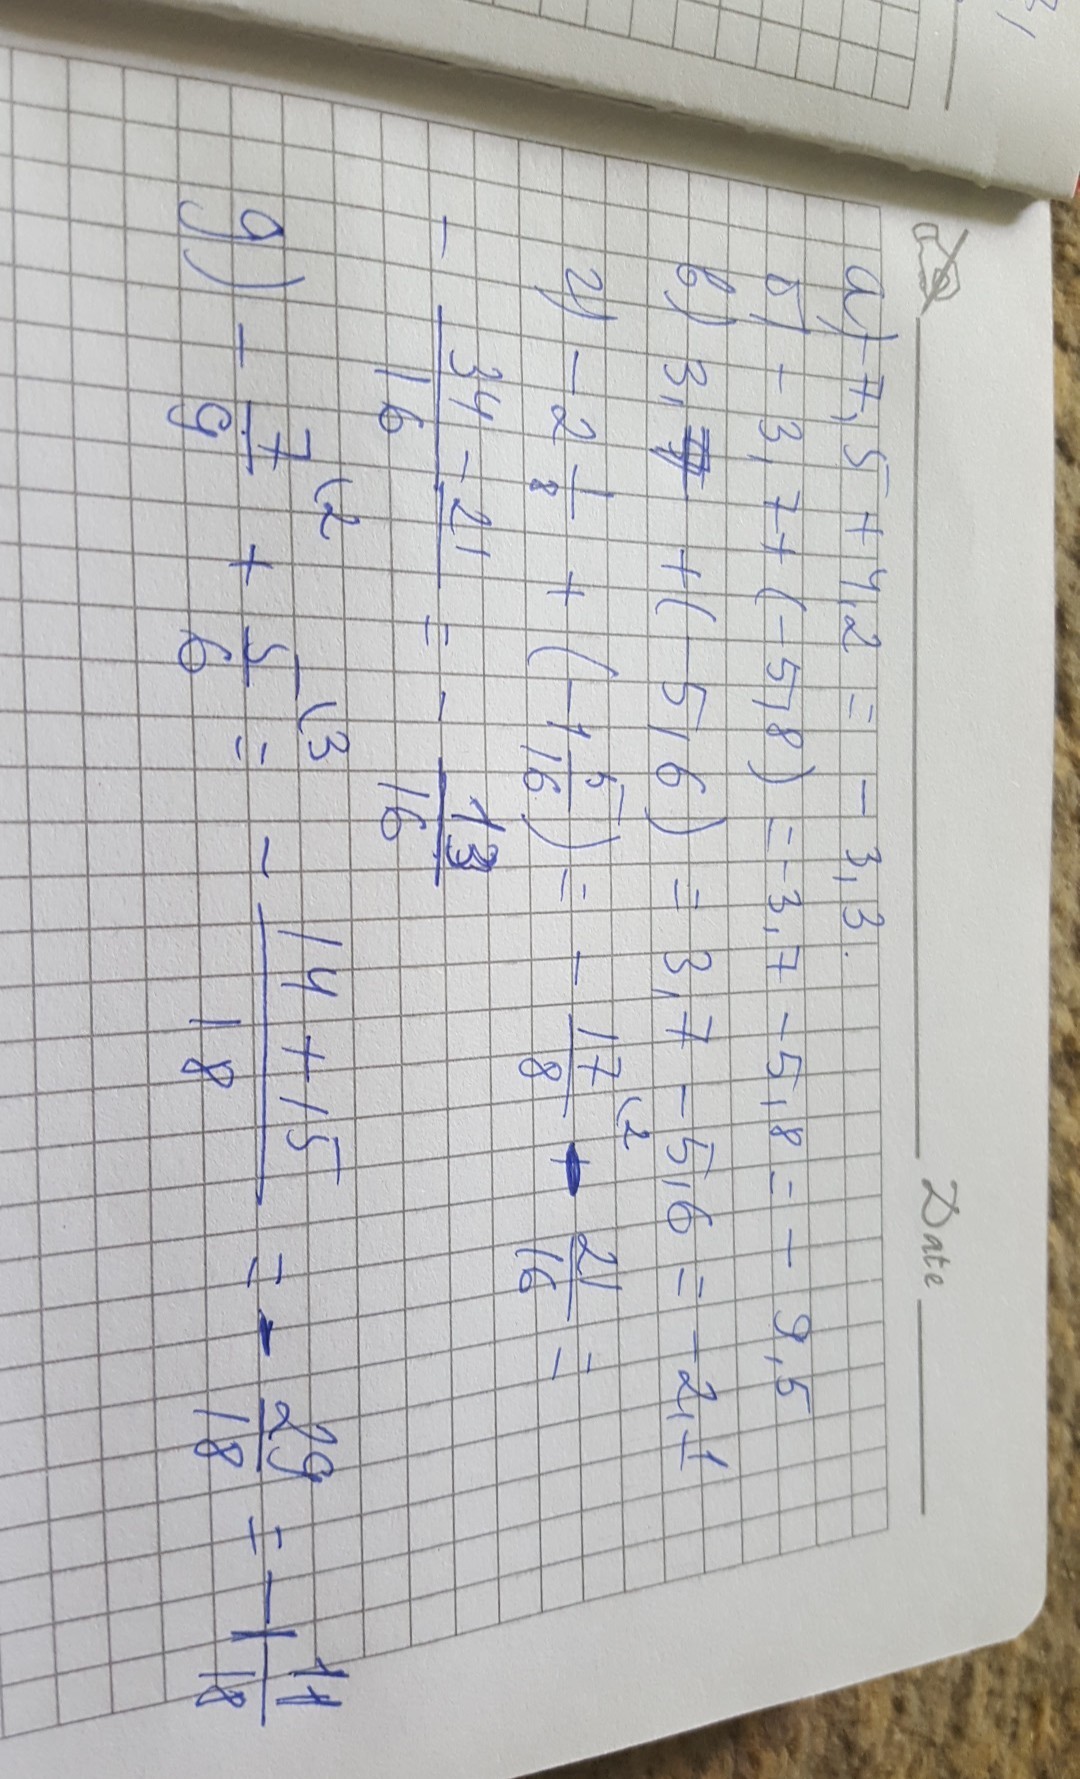 Date
а) -7,5 + 4,2 = - 3,3.
б) - 3,7 + (- 5,8) = -3,7 - 5,8 = - 9,5
в) 3,7 + (- 5,6) = 3,7 - 5,6 = - 2,1
г) - 2 1/8 + (- 1 5/16) = - 17/8 (2 - 21/16 =
- 34 - 21/16 = - 13/16
д) - 7/9 (2 + 5/6 (3 = - 14 + 15/18 = - 29/18 = - 1 11/18